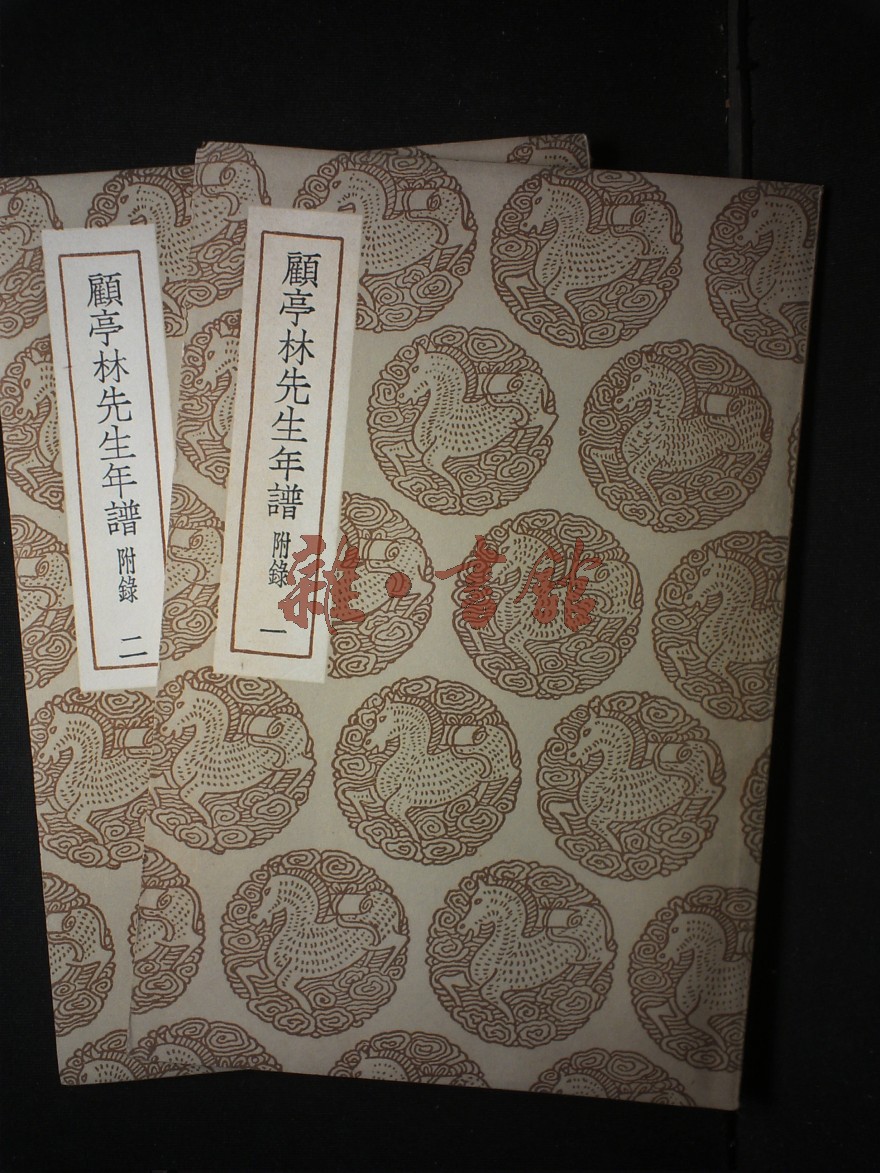 顧亭林先生年譜 附錄 一
顧亭林先生年譜 附錄 二
雜·書館